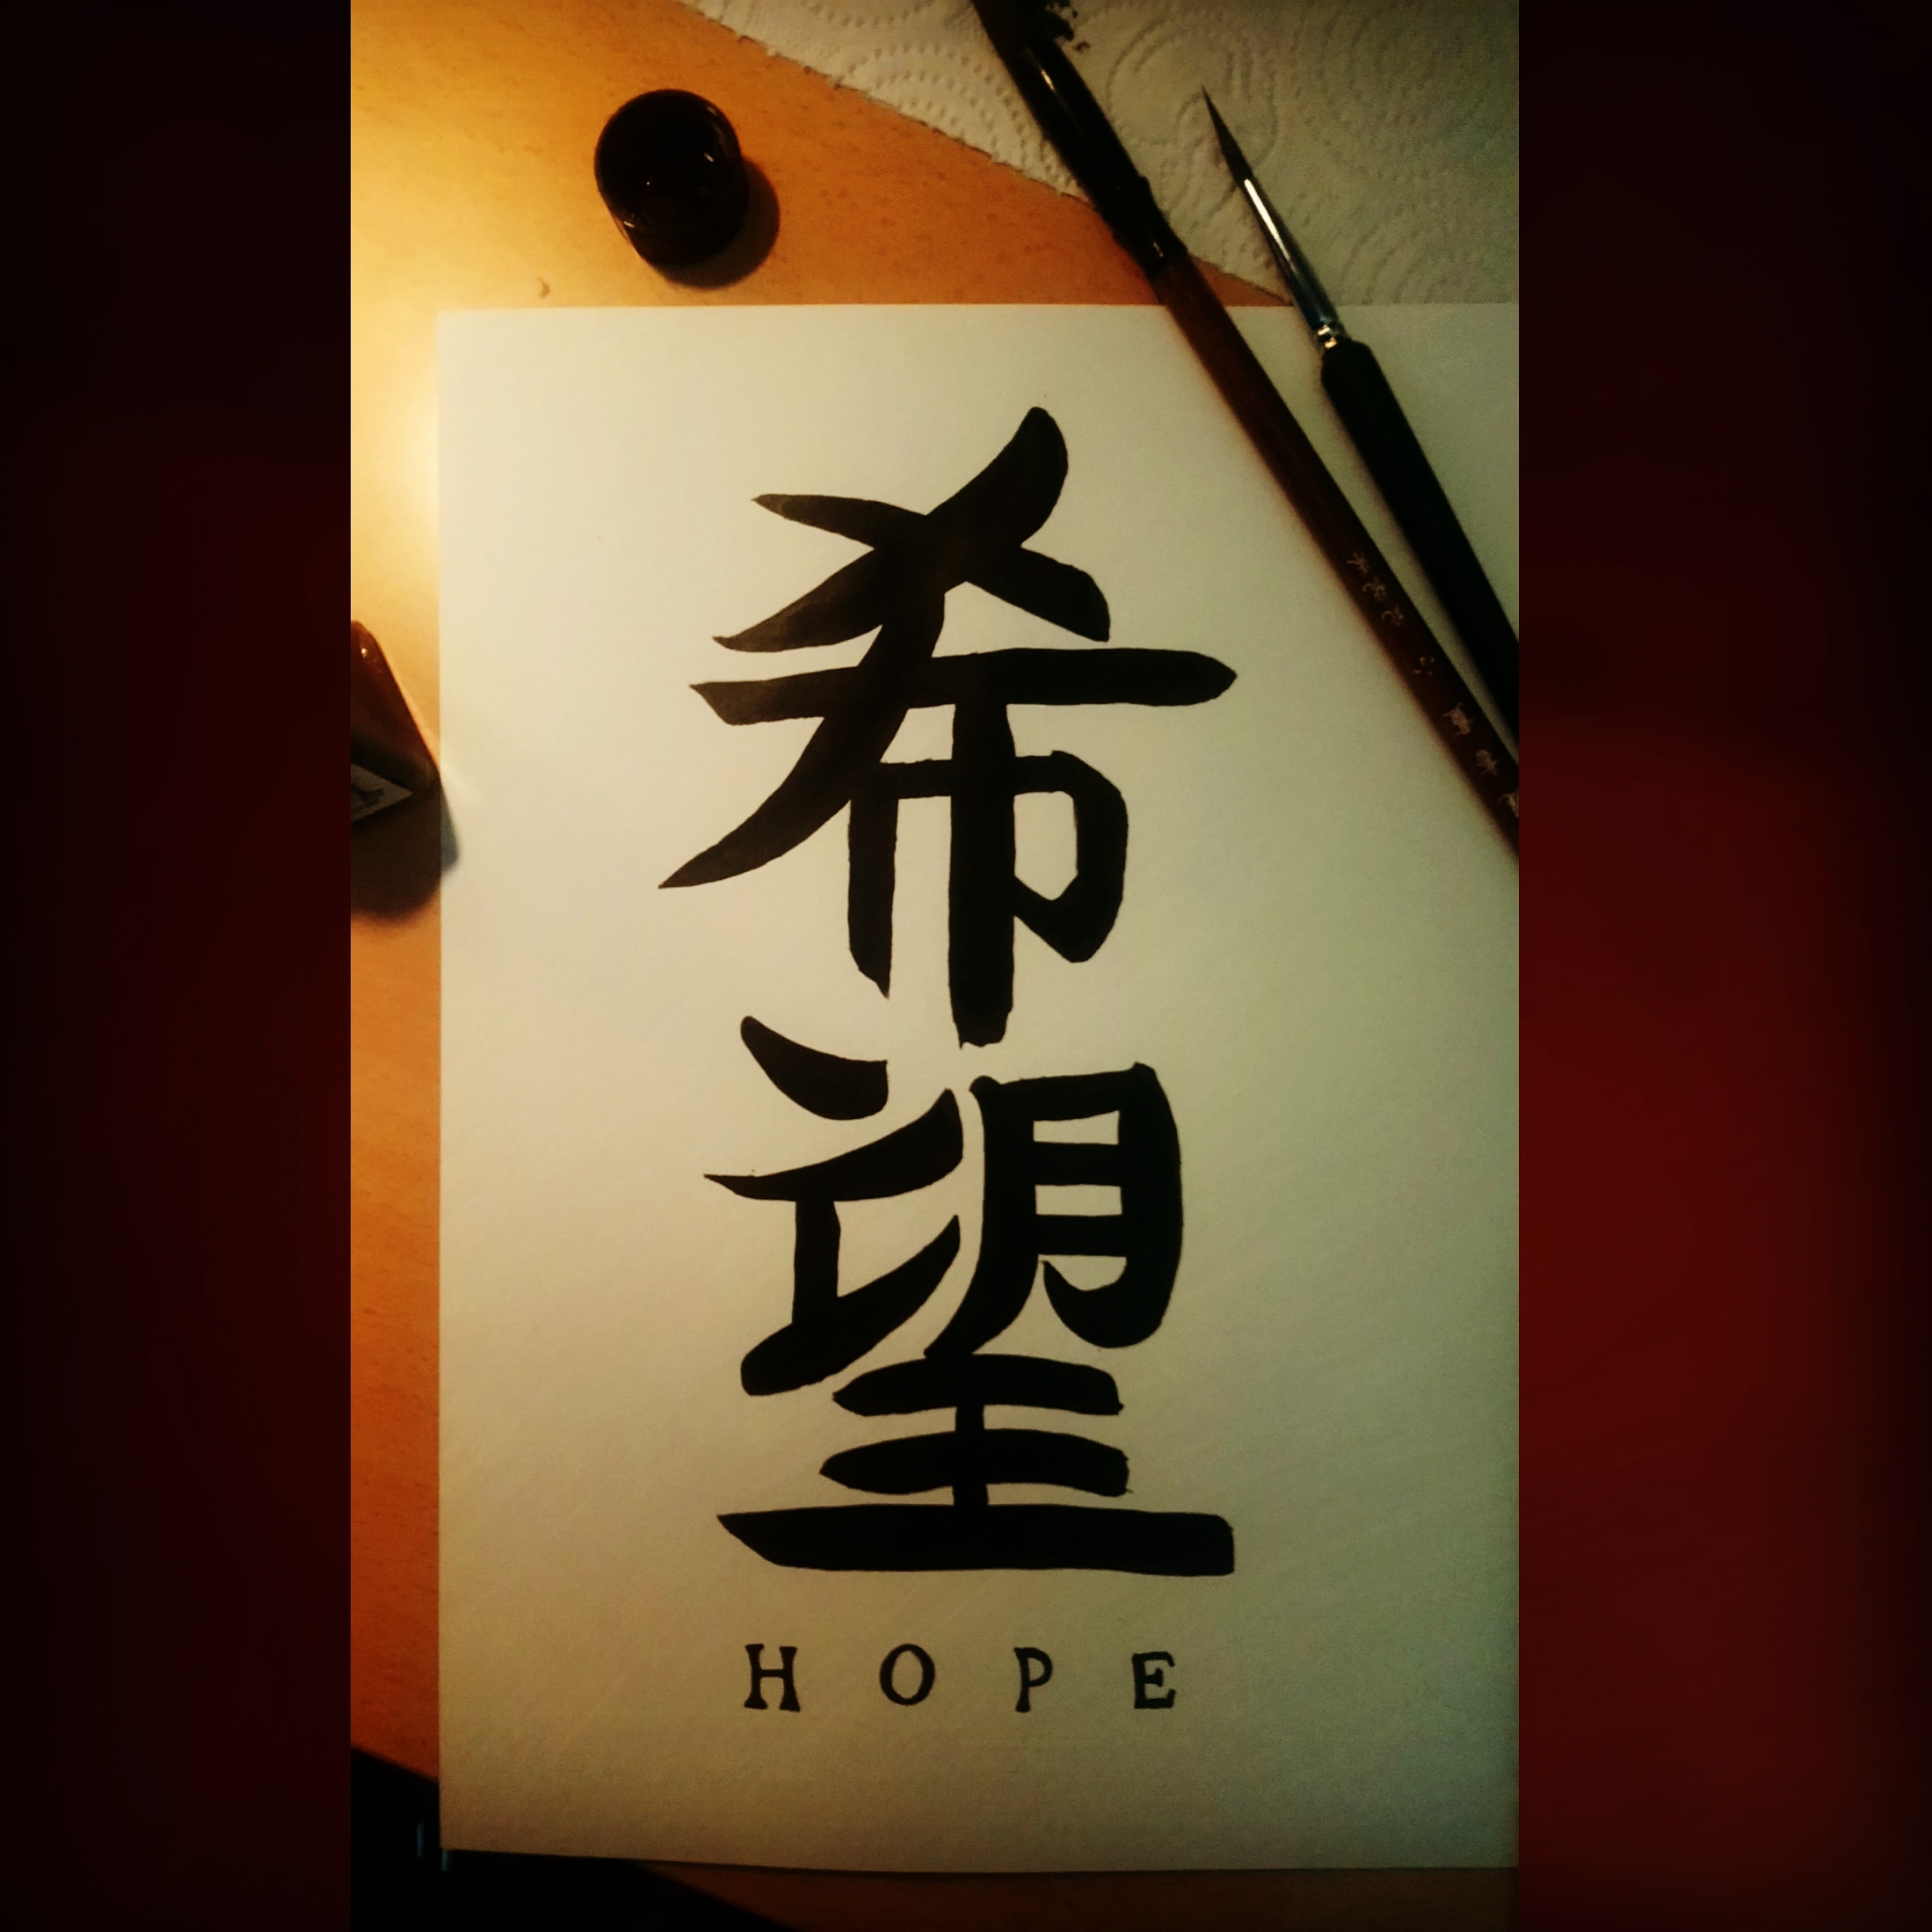 希
望
HOPE